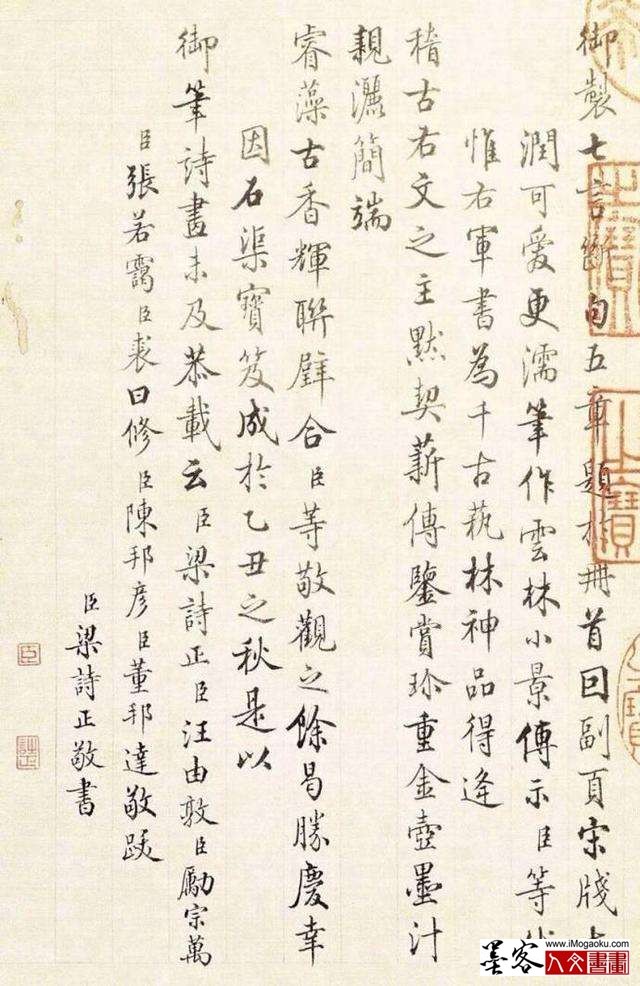 御製七言斷句五章題於冊首回副頁宋牋
潤可愛更濡筆作雲林小景傳示臣等
惟右軍書為千古蓺林神品得逢
稽古右文之主默契薪傳鑒賞珍重金壺墨汁
親灑簡端
睿藻古香輝聯璧合臣等敬觀之餘曷勝慶幸
因石渠寶笈成於乙丑之秋是以
御筆詩畫未及恭載云臣梁詩正臣汪由敦臣勵宗萬
臣張若靄臣裘曰修臣陳邦彥臣董邦達敬跋
臣梁詩正敬書
臣
墨客
www.iMogaoku.com
人文書畫